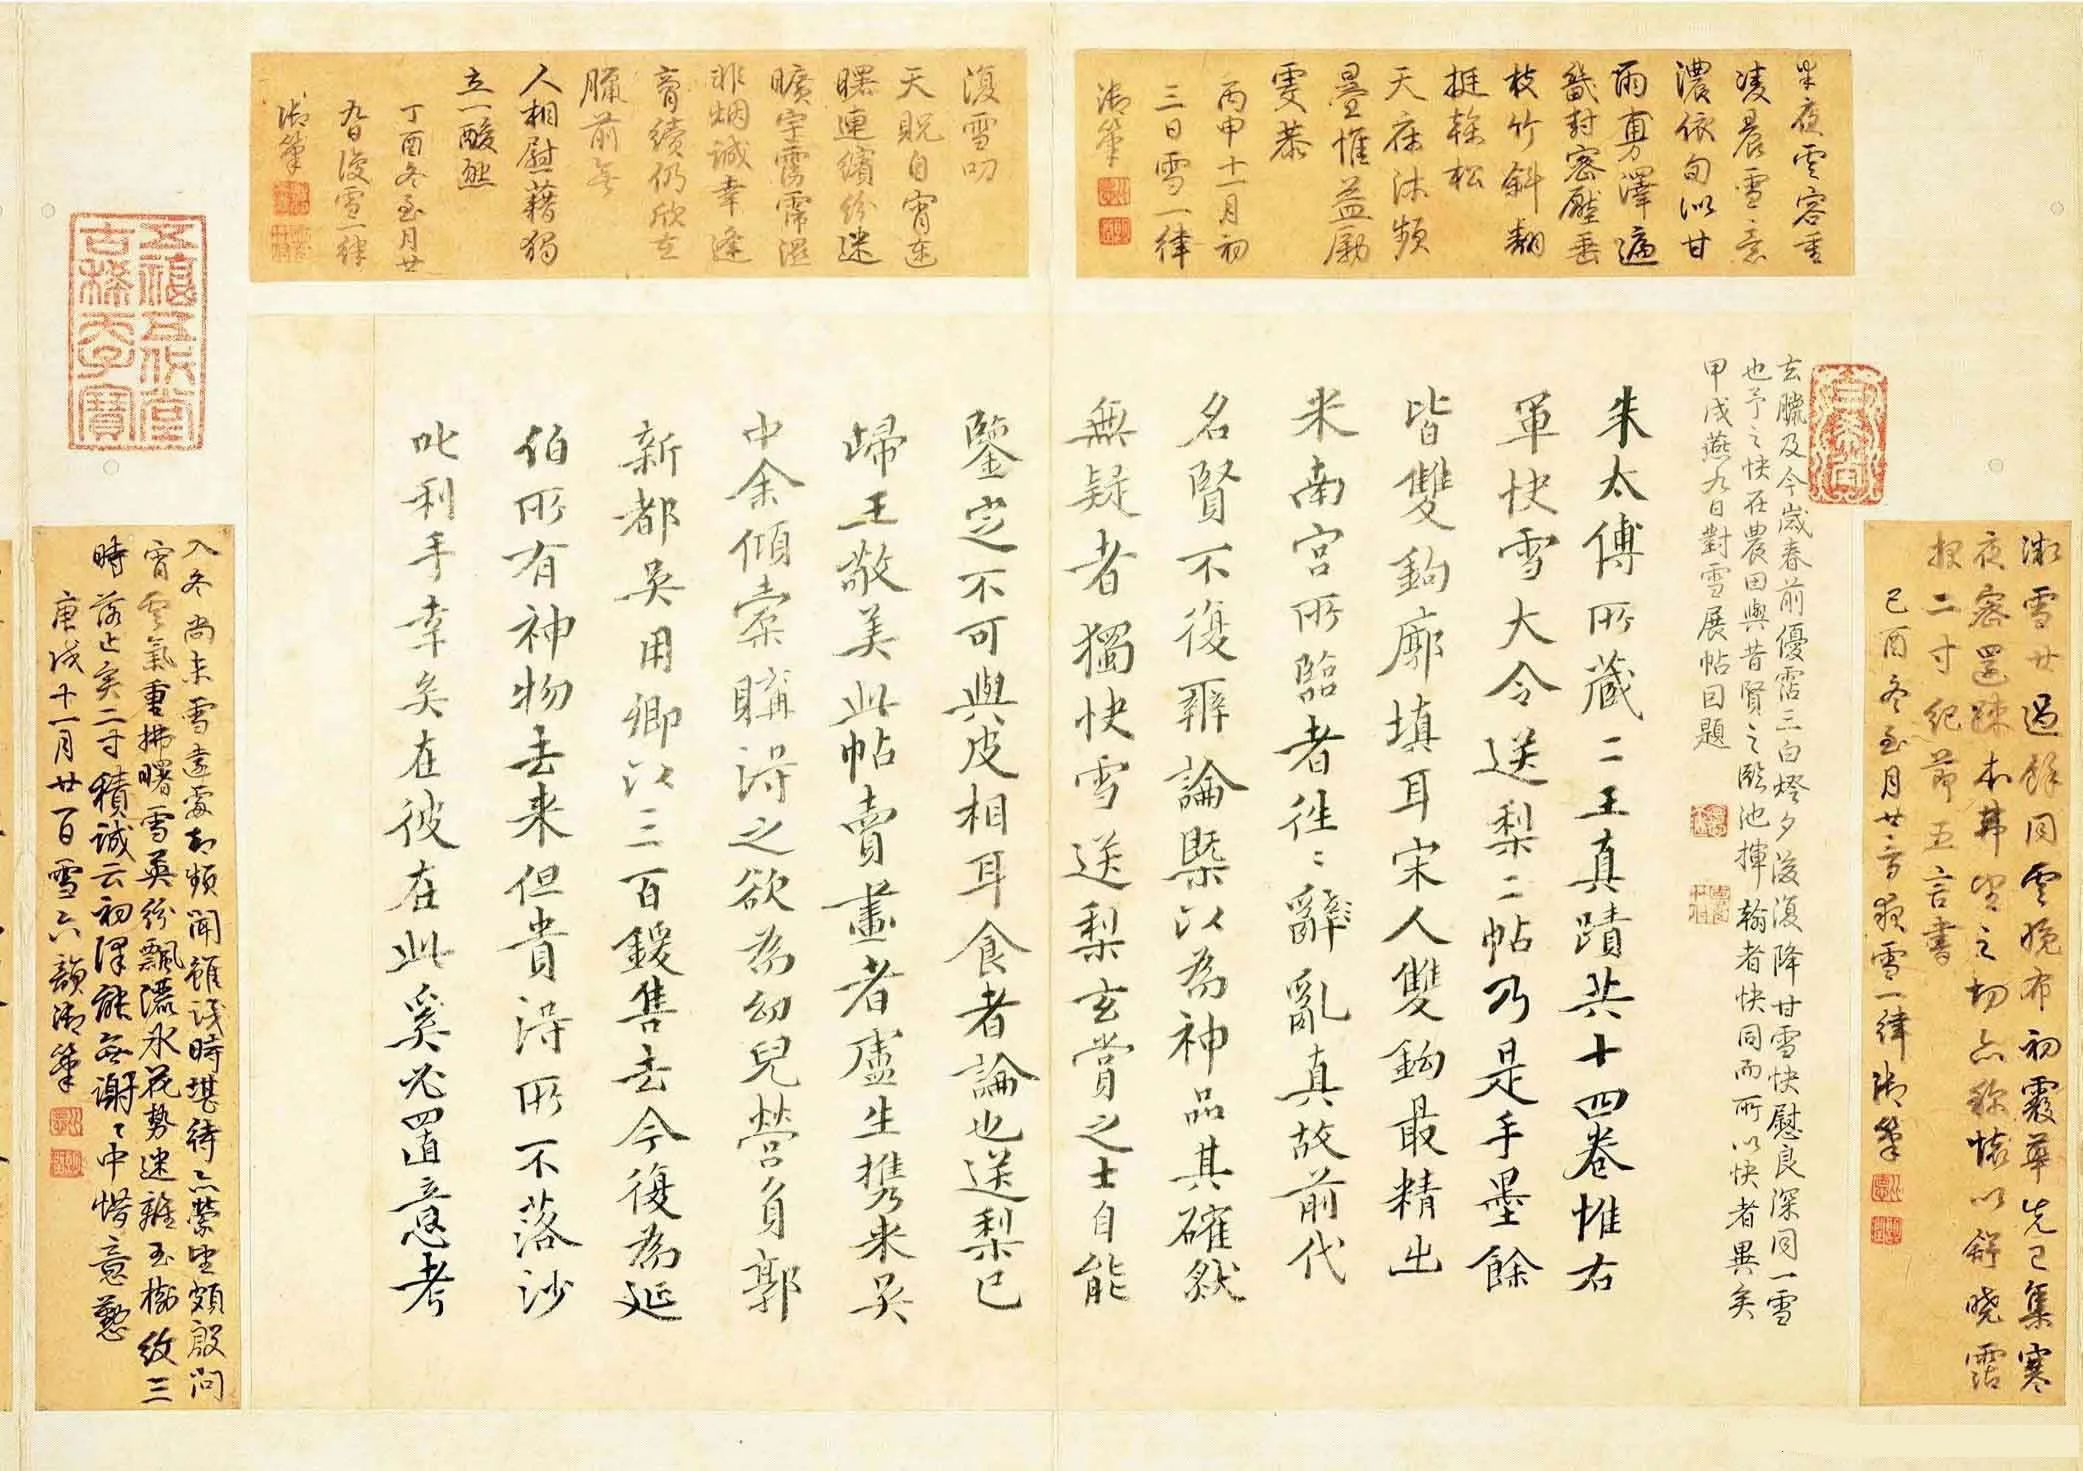 朱太傅所藏二王真蹟共十四卷惟右
軍快雪大令送梨二帖乃是手墨餘
皆雙鉤廓填耳宋人雙鉤最精出
米南宮所臨者往〻辭亂真故前代
名賢不復辨論槩以為神品其確然
無疑者獨快雪送梨玄賞之士自能
鑒定不可與皮相耳食者論也送梨已
歸王敬美此帖賣畫者盧生携来吳
中余傾橐購得之欲為幼兒營負郭
新都吳用卿以三百鍰售去今復為延
伯所有神物去来但貴得所不落沙
叱利手幸矣在彼在此奚必置意考
玄臘及今歲春前優霑三白燈夕後復降甘雪快慰良深同一雪
也予之快在農田與昔賢之臨池揮翰者快同而所以快者異矣
甲戌燕九日對雪展帖因題
半夜雲容重
凌晨雪意
濃依旬以甘
雨專澤遍
畿封密壓垂
枝竹斜翻
挺榦松
天庥沐頻
疊惟益勵
雯恭
丙申十一月初
三日雪一律
御筆
復雪叩
天貺自宵達
曙連繽紛迷
曠宇霶霈溢
非烟誠幸逢
膏續仍欣在
臘前無
人相慰藉獨
立一酸然
丁酉冬至月廿
九日復雪一律
御筆
微雪廿過餘同雲晚布初霰華先已集寒
夜密還疎本弗望之切亦稱懷以舒曉霑
報二寸紀節五言書
己酉冬至月廿二日夜雪一律御筆
入冬尚未雪遠處却頻聞雖淺時堪待亦縈望頗殷問
宵雲氣重拂曙雪英紛飄灑氷花勢迷離玉樹紋三
時落止寅二寸積誠云初澤能無謝〻中惜意懃
庚戌十一月廿一日雪六韻御筆
五福五代堂
古稀天子寶